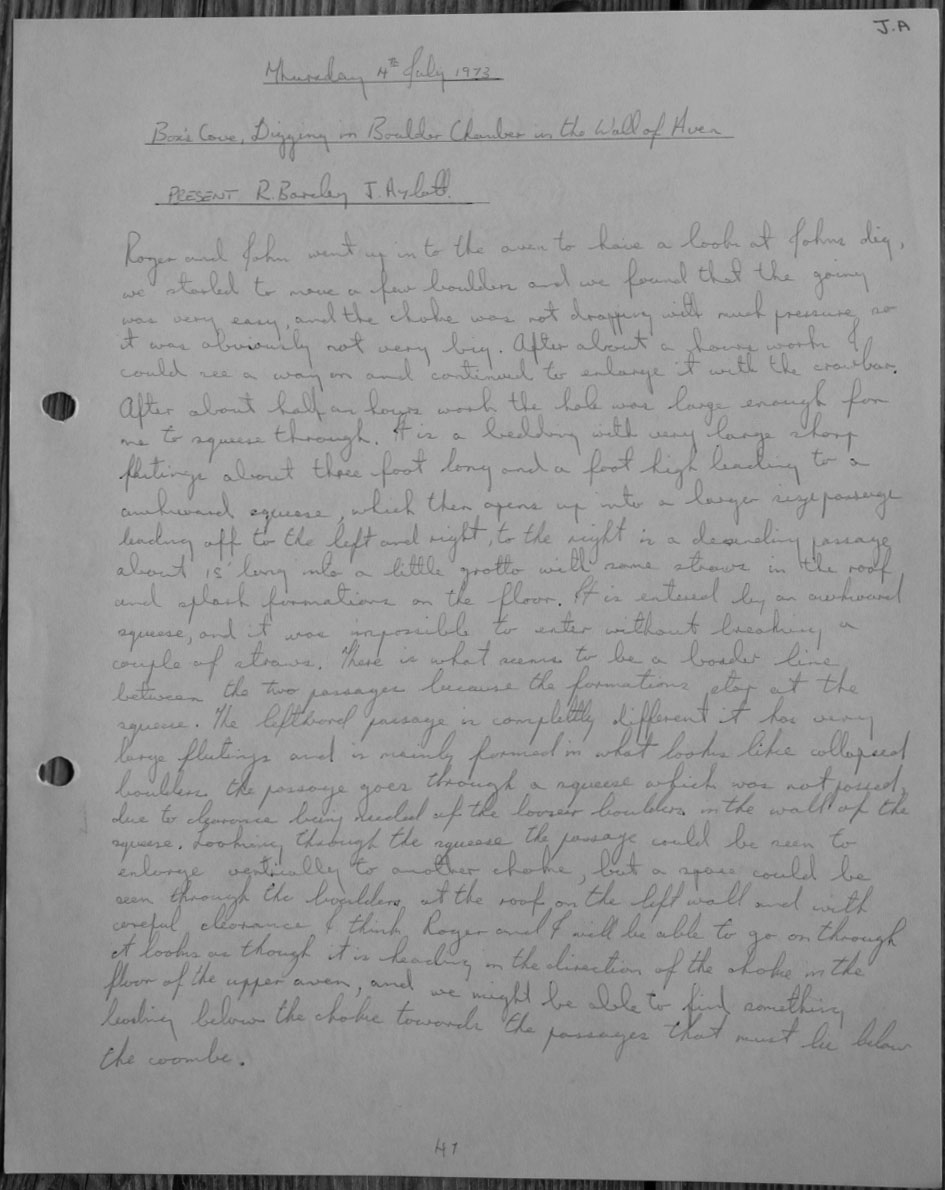 J.A
Thursday 4th July 1973
Box's Cave, Digging in Boulder Chamber in the Wall of Aven
PRESENT R. Barcley J. Aylott.
Roger and John went up in to the aven to have a look at Johns dig,
we started to move a few boulders and we found that the going
was very easy, and the choke was not dropping with much pressure so
it was obviously not very big. After about a hours work I
could see a way on and continued to enlarge it with the crowbar.
After about half an hours work the hole was large enough for
me to squeese through. It is a bedding with very large sharp
flutings about three foot long and a foot high leading to a
awkward squeese, which then opens up into a larger size passage
leading off to the left and right, to the right is a desending passage
about 15' long into a little grotto with some straws in the roof
and splash formations on the floor. It is entered by an awkward
squeese, and it was impossible to enter without breaking a
couple of straws. There is what seems to be a boader line
between the two passages because the formations stop at the
squeese. The lefthand passage is completly different it has very
large flutings and is mainly formed in what looks like collapsed
boulders the passage goes through a squeese which was not passed,
due to clearance being needed of the looser boulders in the wall of the
squeese. Looking through the squeese the passage could be seen to
enlarge vertically to another choke, but a space could be
seen through the boulders at the roof on the left wall and with
careful clearance I think Roger and I will be able to go on through
it looks as though it is heading in the direction of the choke in the
floor of the upper aven, and we might be able to find something
leading below the choke towards the passages that must lie below
the coombe.
41